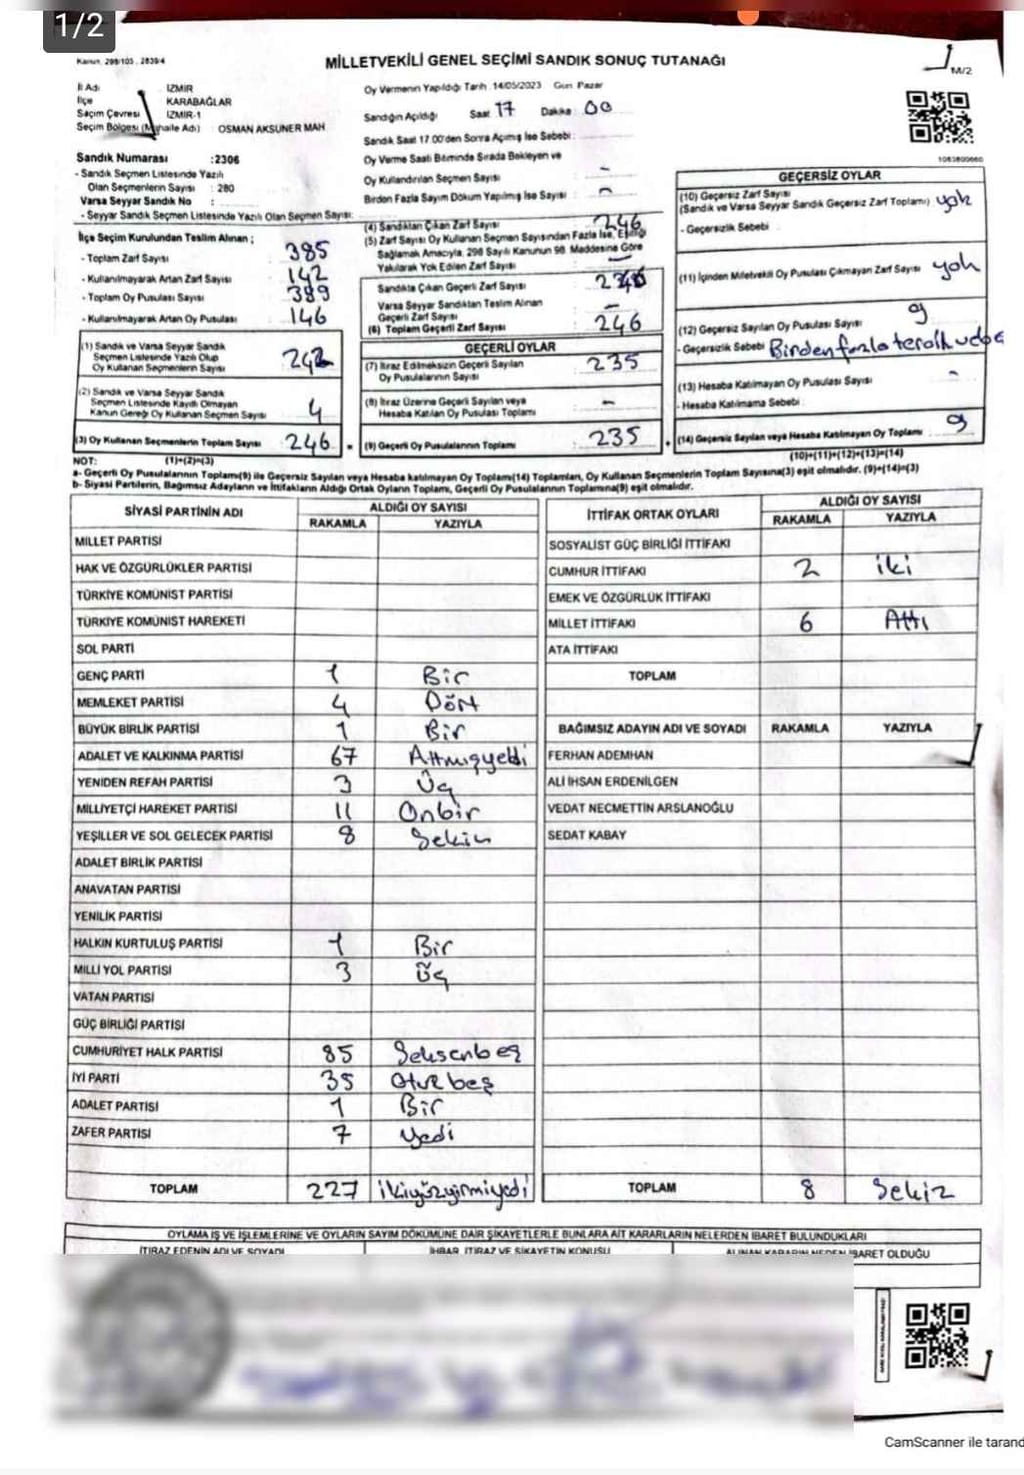 1/2
Kanun. 298/105 . 2839/4
MİLLETVEKİLİ GENEL SEÇİMİ SANDIK SONUÇ TUTANAĞI
M/2
İl Adı İZMİR
İlçe KARABAĞLAR
Seçim Çevresi İZMİR-1
Seçim Bölgesi (Mahalle Adı) : OSMAN AKSÜNER MAH
Oy Vermenin Yapıldığı Tarih 14/05/2023 Gün Pazar
Sandığın Açıldığı Saat 17 Dakika 00
Sandık Saat 17.00'den Sonra Açılmış İse Sebebi :
Sandık Numarası :2306
- Sandık Seçmen Listesinde Yazılı
Olan Seçmenlerin Sayısı : 280
Varsa Seyyar Sandık No :
- Seyyar Sandık Seçmen Listesinde Yazılı Olan Seçmen Sayısı:
Oy Verme Saati Bitiminde Sırada Bekleyen ve
Oy Kullandırılan Seçmen Sayısı -
Birden Fazla Sayım Döküm Yapılmış İse Sayısı : -
İlçe Seçim Kurulundan Teslim Alınan ;
- Toplam Zarf Sayısı 385
- Kullanılmayarak Artan Zarf Sayısı 142
- Toplam Oy Pusulası Sayısı 389
- Kullanılmayarak Artan Oy Pusulası 146
(1) Sandık ve Varsa Seyyar Sandık
Seçmen Listesinde Yazılı Olup
Oy Kullanan Seçmenlerin Sayısı 242
(2) Sandık ve Varsa Seyyar Sandık
Seçmen Listesinde Kayıtlı Olmayan
Kanun Gereği Oy Kullanan Seçmen Sayısı 4
(3) Oy Kullanan Seçmenlerin Toplam Sayısı 246
(4) Sandıktan Çıkan Zarf Sayısı 246
(5) Zarf Sayısı Oy Kullanan Seçmen Sayısından Fazla İse, Eşitliği
Sağlamak Amacıyla, 298 Sayılı Kanunun 98. Maddesine Göre
Yakılarak Yok Edilen Zarf Sayısı -
Sandıkta Çıkan Geçerli Zarf Sayısı 246
Varsa Seyyar Sandıktan Teslim Alınan
Geçerli Zarf Sayısı -
(6) Toplam Geçerli Zarf Sayısı 246
GEÇERLİ OYLAR
(7) İtiraz Edilmeksizin Geçerli Sayılan
Oy Pusulalarının Sayısı : 235
(8) İtiraz Üzerine Geçerli Sayılan veya
Hesaba Katılan Oy Pusulası Toplamı : -
(9) Geçerli Oy Pusulalarının Toplamı : 235
1083800660
GEÇERSİZ OYLAR
(10) Geçersiz Zarf Sayısı
(Sandık ve Varsa Seyyar Sandık Geçersiz Zarf Toplamı) yok
- Geçersizlik Sebebi :
(11) İçinden Milletvekili Oy Pusulası Çıkmayan Zarf Sayısı yok
(12) Geçersiz Sayılan Oy Pusulası Sayısı 9
- Geçersizlik Sebebi Birden fazla
(13) Hesaba Katılmayan Oy Pusulası Sayısı -
- Hesaba Katılmama Sebebi :
(14) Geçersiz Sayılan veya Hesaba Katılmayan Oy Toplamı 9
(10)+(11)+(12)+(13)=(14)
NOT: (1)+(2)=(3)
a- Geçerli Oy Pusulalarının Toplamı(9) ile Geçersiz Sayılan veya Hesaba katılmayan Oy Toplamı(14) Toplamları, Oy Kullanan Seçmenlerin Toplam Sayısına(3) eşit olmalıdır. (9)+(14)=(3)
b- Siyasi Partilerin, Bağımsız Adayların ve İttifakların Aldığı Ortak Oyların Toplamı, Geçerli Oy Pusulalarının Toplamına(9) eşit olmalıdır.
SİYASİ PARTİNİN ADI ALDIĞI OY SAYISI
RAKAMLA YAZIYLA
MİLLET PARTİSİ
HAK VE ÖZGÜRLÜKLER PARTİSİ
TÜRKİYE KOMÜNİST PARTİSİ
TÜRKİYE KOMÜNİST HAREKETİ
SOL PARTİ
GENÇ PARTİ 1 Bir
MEMLEKET PARTİSİ 4 Dört
BÜYÜK BİRLİK PARTİSİ 1 Bir
ADALET VE KALKINMA PARTİSİ 67 Atmışyedi
YENİDEN REFAH PARTİSİ 3 Üç
MİLLİYETÇİ HAREKET PARTİSİ 11 Onbir
YEŞİLLER VE SOL GELECEK PARTİSİ 8 Sekiz
ADALET BİRLİK PARTİSİ
ANAVATAN PARTİSİ
YENİLİK PARTİSİ
HALKIN KURTULUŞ PARTİSİ 1 Bir
MİLLİ YOL PARTİSİ 3 üç
VATAN PARTİSİ
GÜÇ BİRLİĞİ PARTİSİ
CUMHURİYET HALK PARTİSİ 85 Seksenbeş
İYİ PARTİ 35 Otuzbeş
ADALET PARTİSİ 1 Bir
ZAFER PARTİSİ 7 Yedi
TOPLAM 227 ikiyüzyirmiyedi
İTTİFAK ORTAK OYLARI ALDIĞI OY SAYISI
RAKAMLA YAZIYLA
SOSYALİST GÜÇ BİRLİĞİ İTTİFAKI
CUMHUR İTTİFAKI 2 iki
EMEK VE ÖZGÜRLÜK İTTİFAKI
MİLLET İTTİFAKI 6 Altı
ATA İTTİFAKI
TOPLAM
BAĞIMSIZ ADAYIN ADI VE SOYADI RAKAMLA YAZIYLA
FERHAN ADEMHAN
ALİ İHSAN ERDENİLGEN
VEDAT NECMETTİN ARSLANOĞLU
SEDAT KABAY
TOPLAM 8 Sekiz
OYLAMA İŞ VE İŞLEMLERİNE VE OYLARIN SAYIM DÖKÜMÜNE DAİR ŞİKAYETLERLE BUNLARA AİT KARARLARIN NELERDEN İBARET BULUNDUKLARI
İTİRAZ EDENİN ADI VE SOYADI İHBAR, İTİRAZ VE ŞİKAYETİN KONUSU ALINAN KARARIN NEDEN İBARET OLDUĞU
CamScanner ile tarand